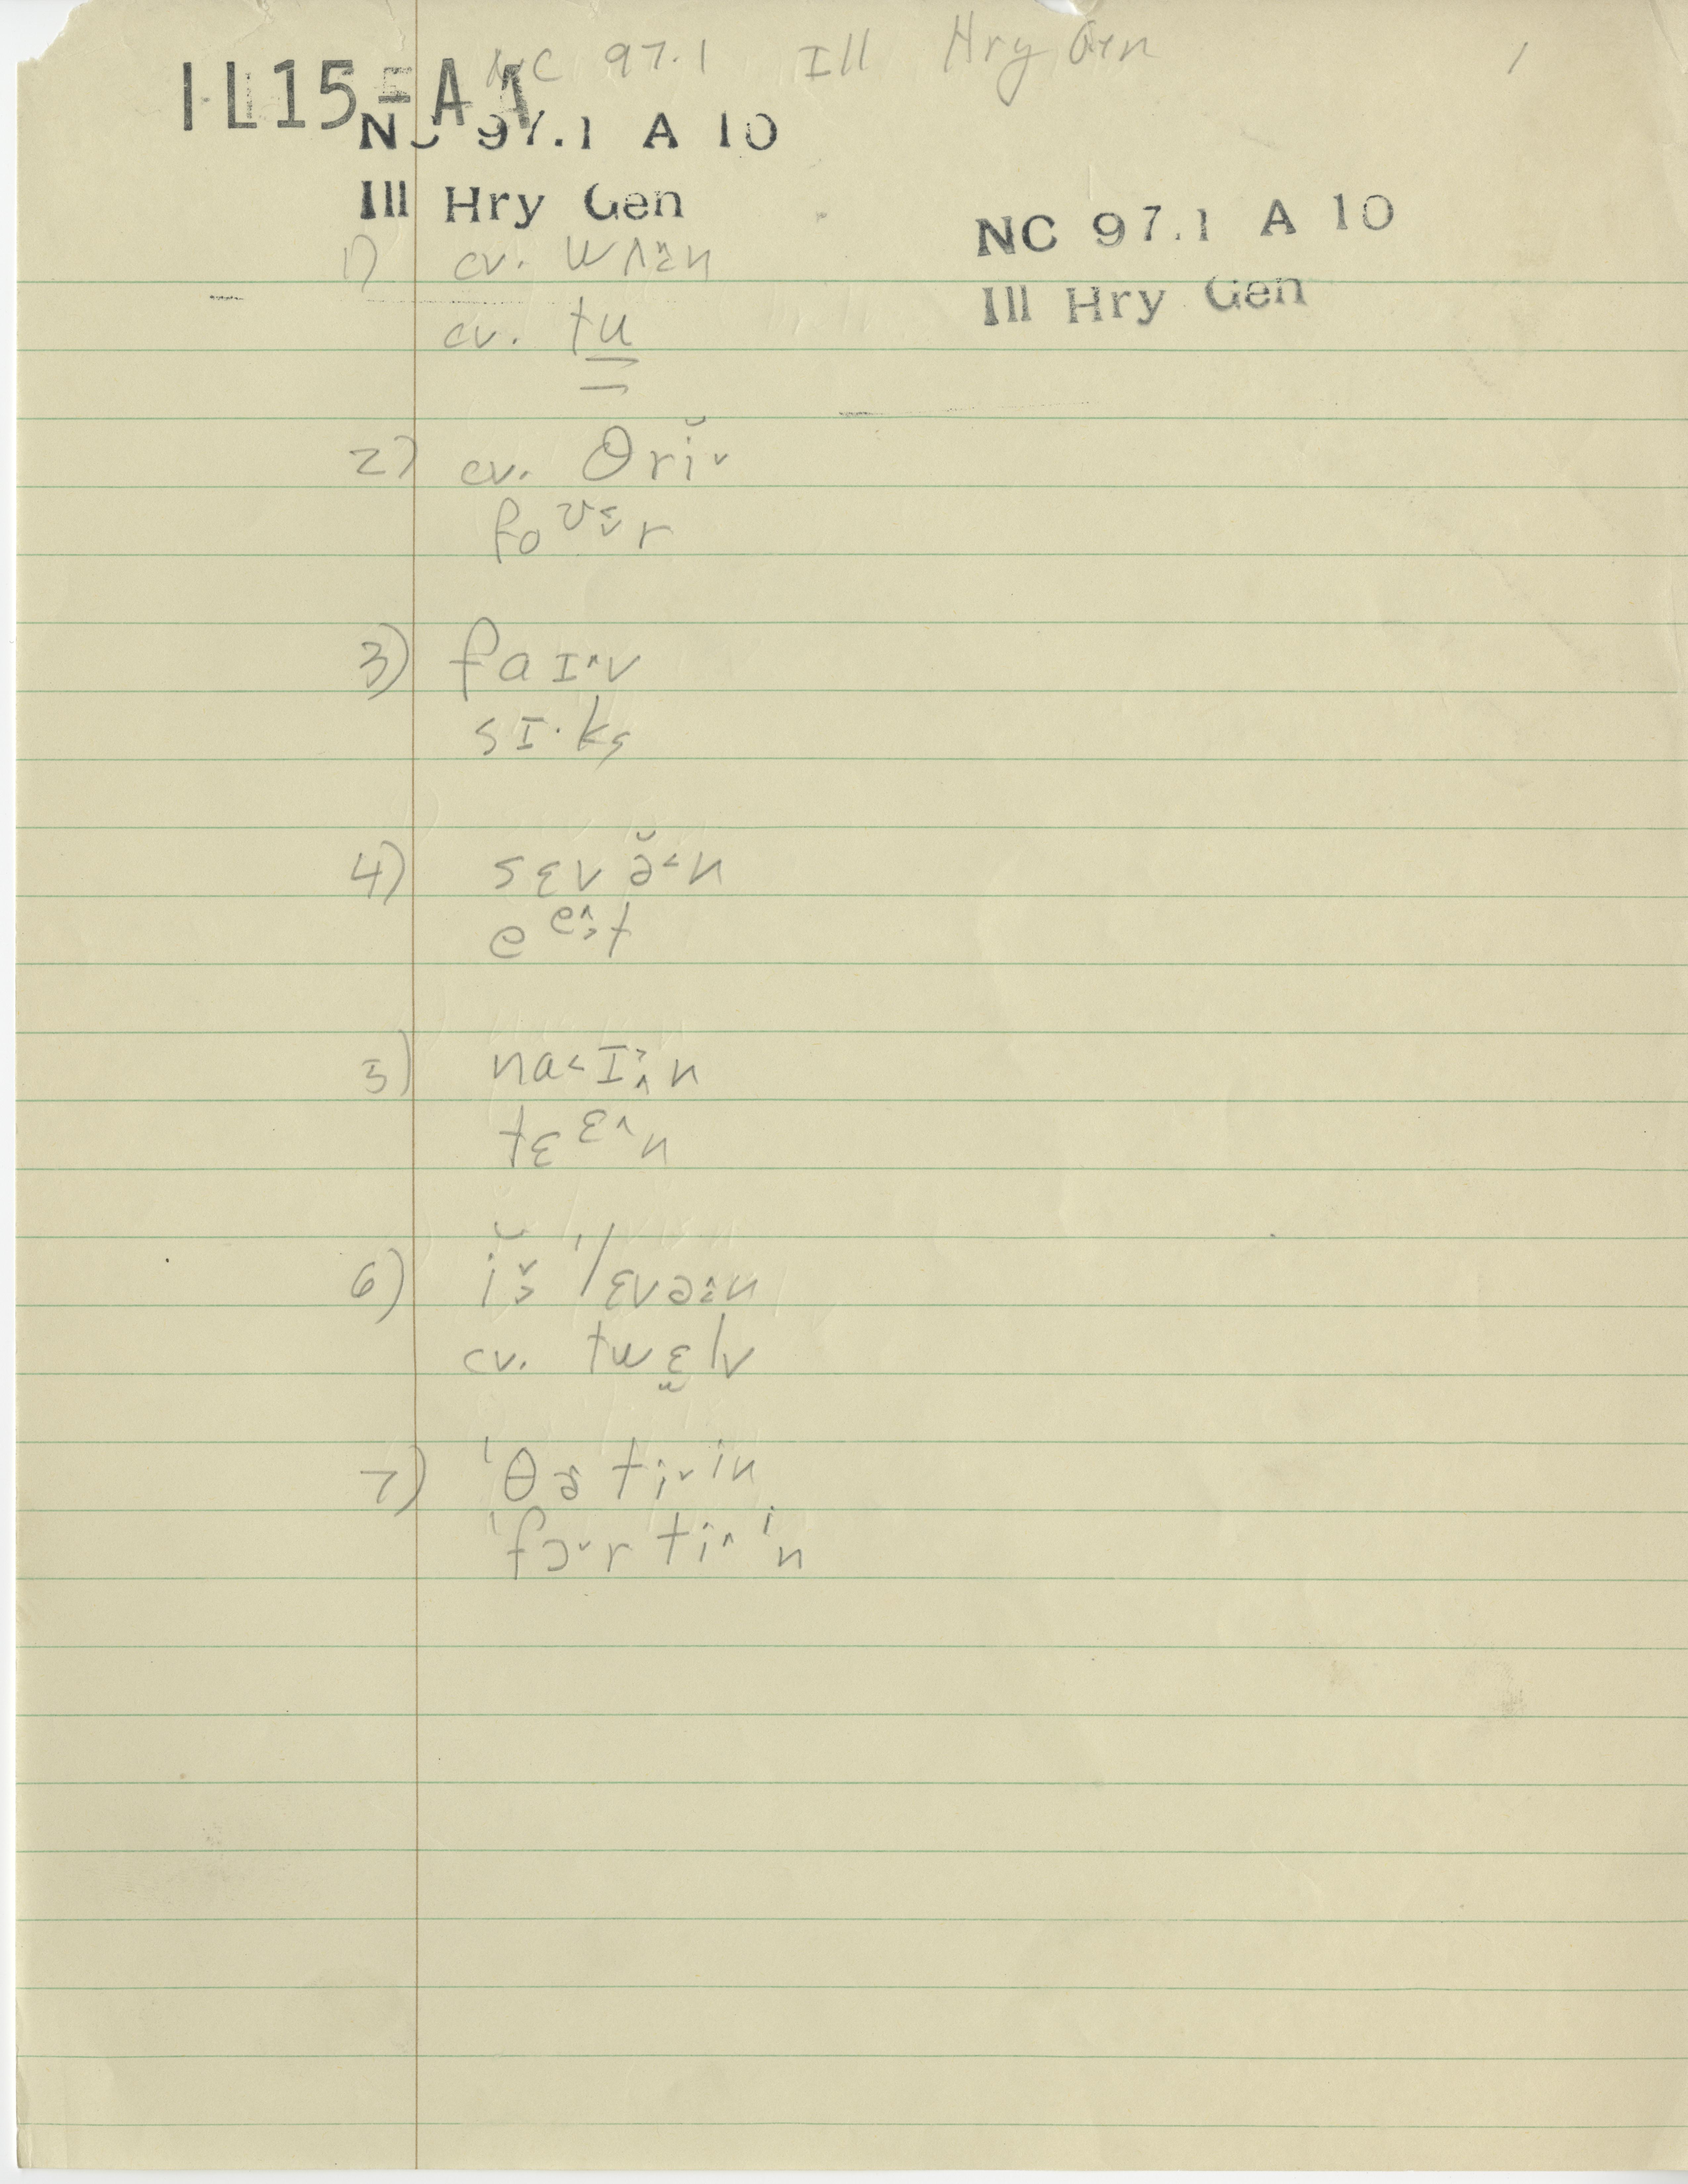 NC 97.1 Ill Hry Gen 1
IL15-A
NC 97.1 A 10
Ill Hry Gen
NC 97.1 A 10
Ill Hry Gen
1) cv. wʌ˄˃n
cv. tu
2) cv. θrĭ˅
foʊ˂˅r
3) faɪ˄v
sɪ·ks
4) sɛvə̆˂n
eeˆ˃t
5) na˂ɪ˃˄n
tɛɛ˄n
6) ĭ˅˃ˈlɛvə˄˃n
cv. twɛ̮lv
7) ˈθɚti˅in
ˈfɔ˅rti˄in